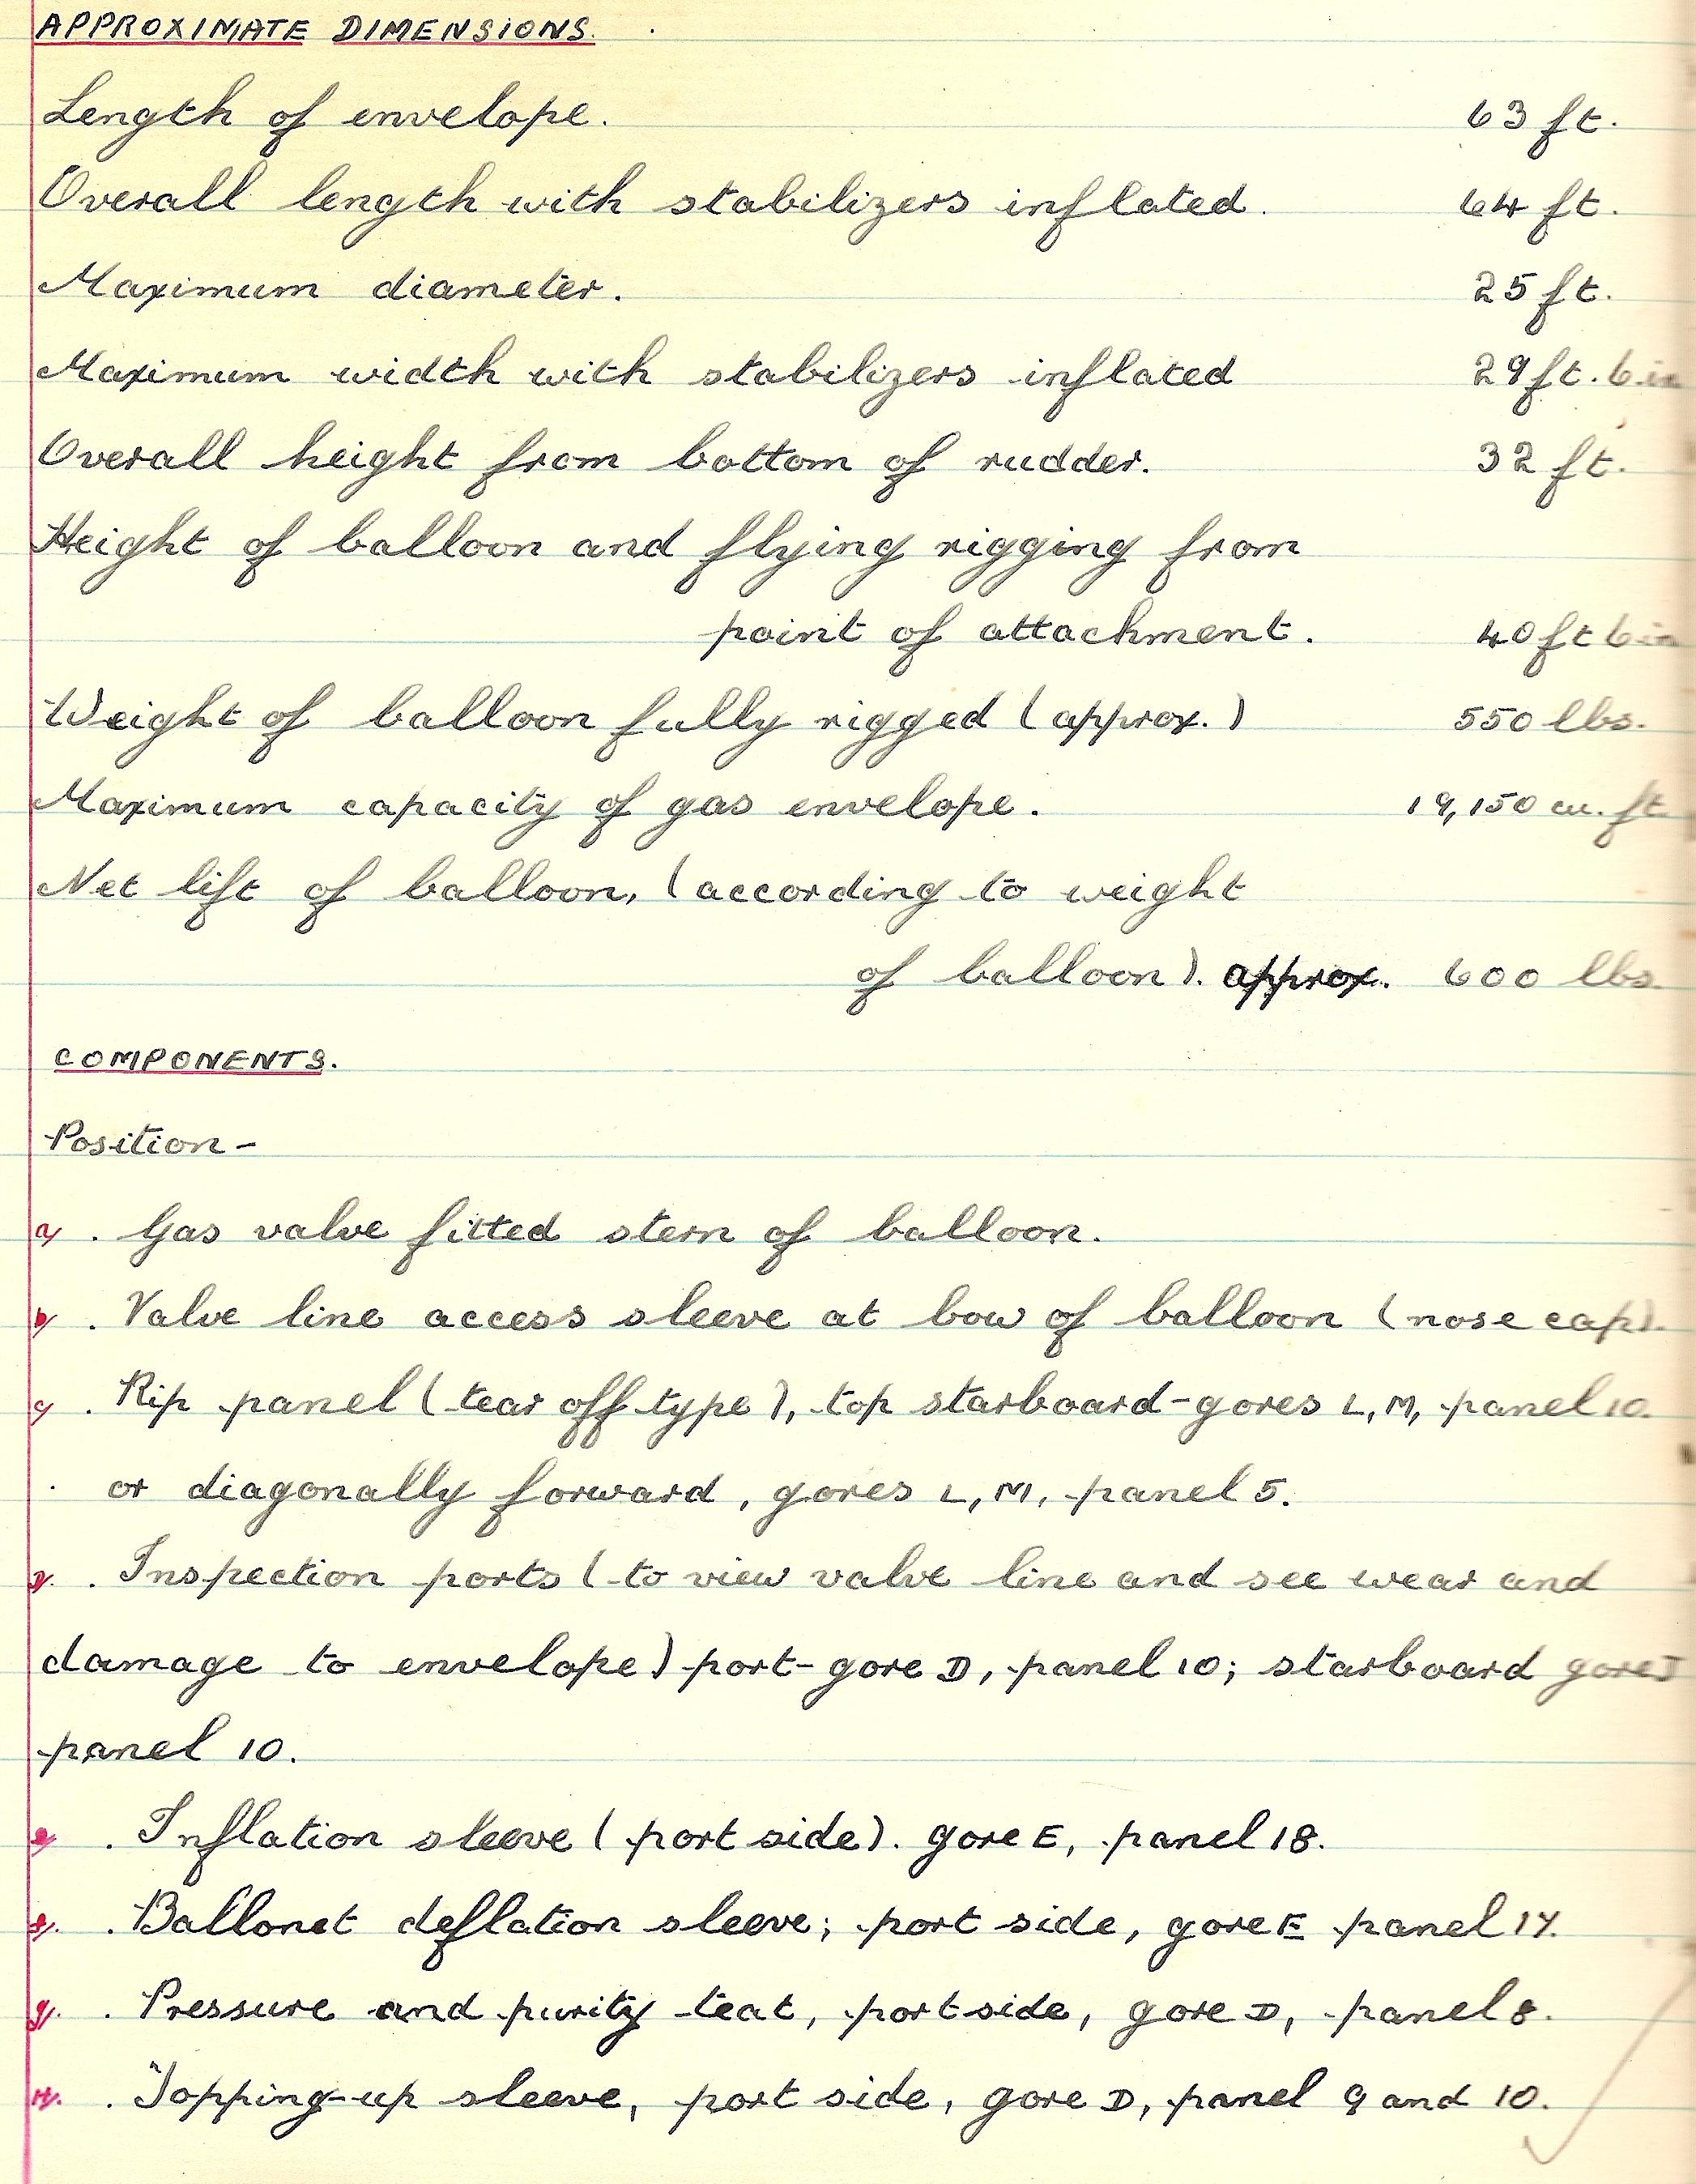 APPROXIMATE DIMENSIONS.
Length of envelope. 63 ft.
Overall length with stabilizers inflated. 64 ft.
Maximum diameter. 25 ft.
Maximum width with stabilizers inflated 29 ft. 6 in
Overall height from bottom of rudder. 32 ft.
Height of balloon and flying rigging from
point of attachment. 40 ft 6 in
Weight of balloon fully rigged (approx.) 550 lbs.
Maximum capacity of gas envelope. 19,150 cu. ft.
Net lift of balloon, (according to weight
of balloon). approx. 600 lbs.
COMPONENTS.
Position -
a . Gas valve fitted stern of balloon.
b . Valve line access sleeve at bow of balloon (nose cap).
c . Rip panel (tear off type), top starboard - gores L, M, panel 10.
or diagonally forward, gores L, M, panel 5.
D. . Inspection ports (to view valve line and see wear and
damage to envelope) port - gore D, panel 10; starboard gore
panel 10.
e . Inflation sleeve (port side). gore E, panel 18.
f. . Ballonet deflation sleeve; port side, gore E panel
g. . Pressure and purity teat, port side, gore D, panel 8.
H. . Topping-up sleeve, port side, gore D, panel 9 and 10.